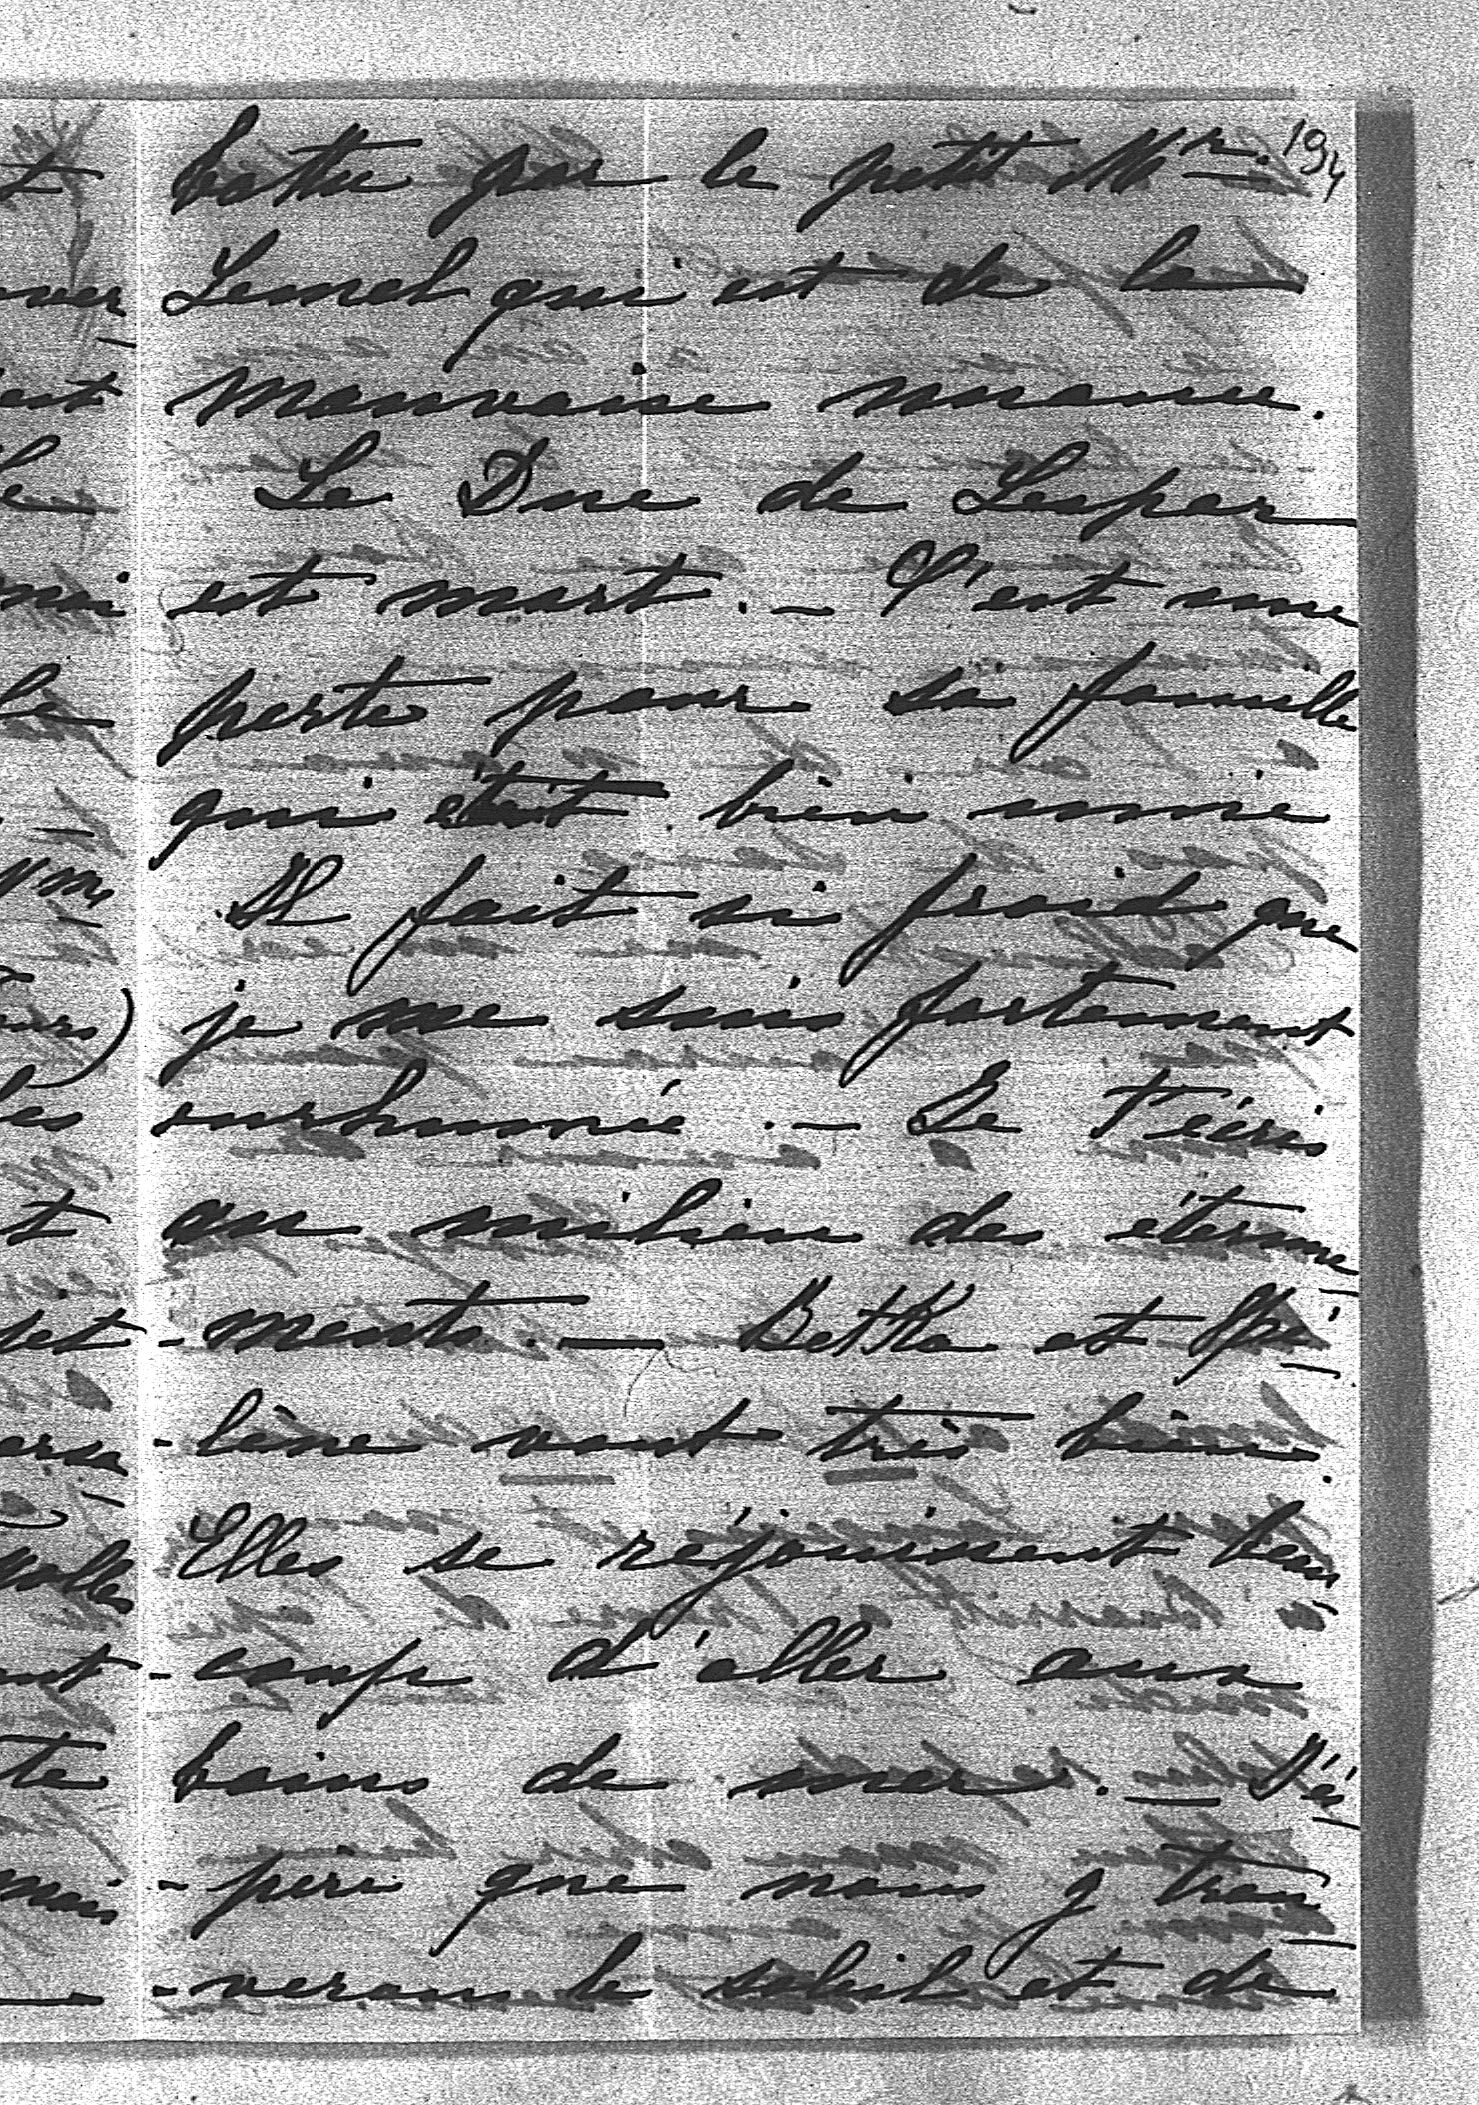 194
battu par le petit Mr.
Lemel qui est de la
mauvaise nuance.
Le Duc de Lespar
est mort. — C'est une
perte pour sa famille
qui était bien unie
Il fait si froid que
je me suis fortement
enrhumé. — Je t'écris
au milieu des éternue-
-ments. — Bettka et
-line vont très bien.
Elles se réjouissent beau-
-coup d'aller aux
bains de mer. — J'es-
-père que nous y trou-
-verons le soleil et de